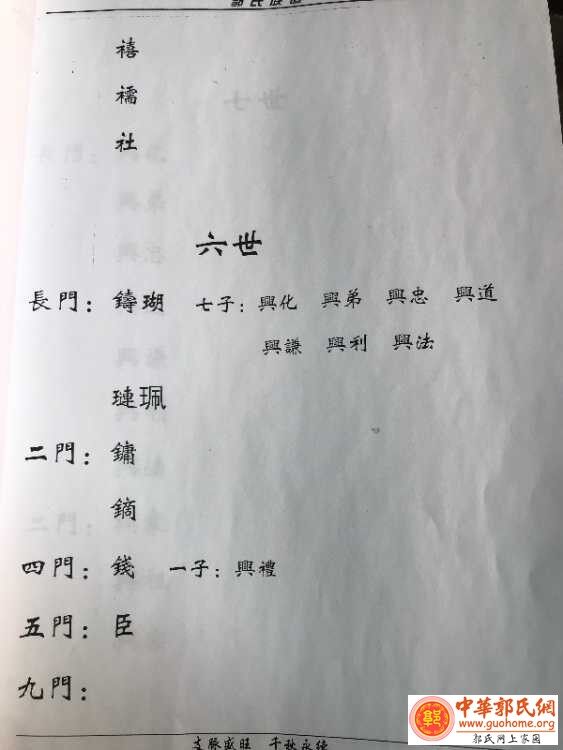 郭氏族譜
禧
襦
社
六世
長門：鑄瑚 七子：興化 興弟 興忠 興道
興謙 興利 興法
璉珮
二門：鏞
鏑
四門：錢 一子：興禮
五門：臣
九門：
支脈盛旺 千秋永續
中華郭氏網
www.guohome.org
郭氏网上家园